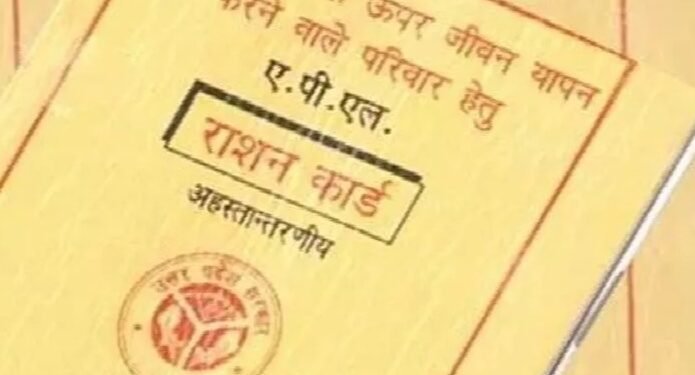 ऊपर जीवन यापन
करने वाले परिवार हेतु
ए.पी.एल.
राशन कार्ड
अहस्तान्तरणीय
उत्तर प्रदेश सरकार